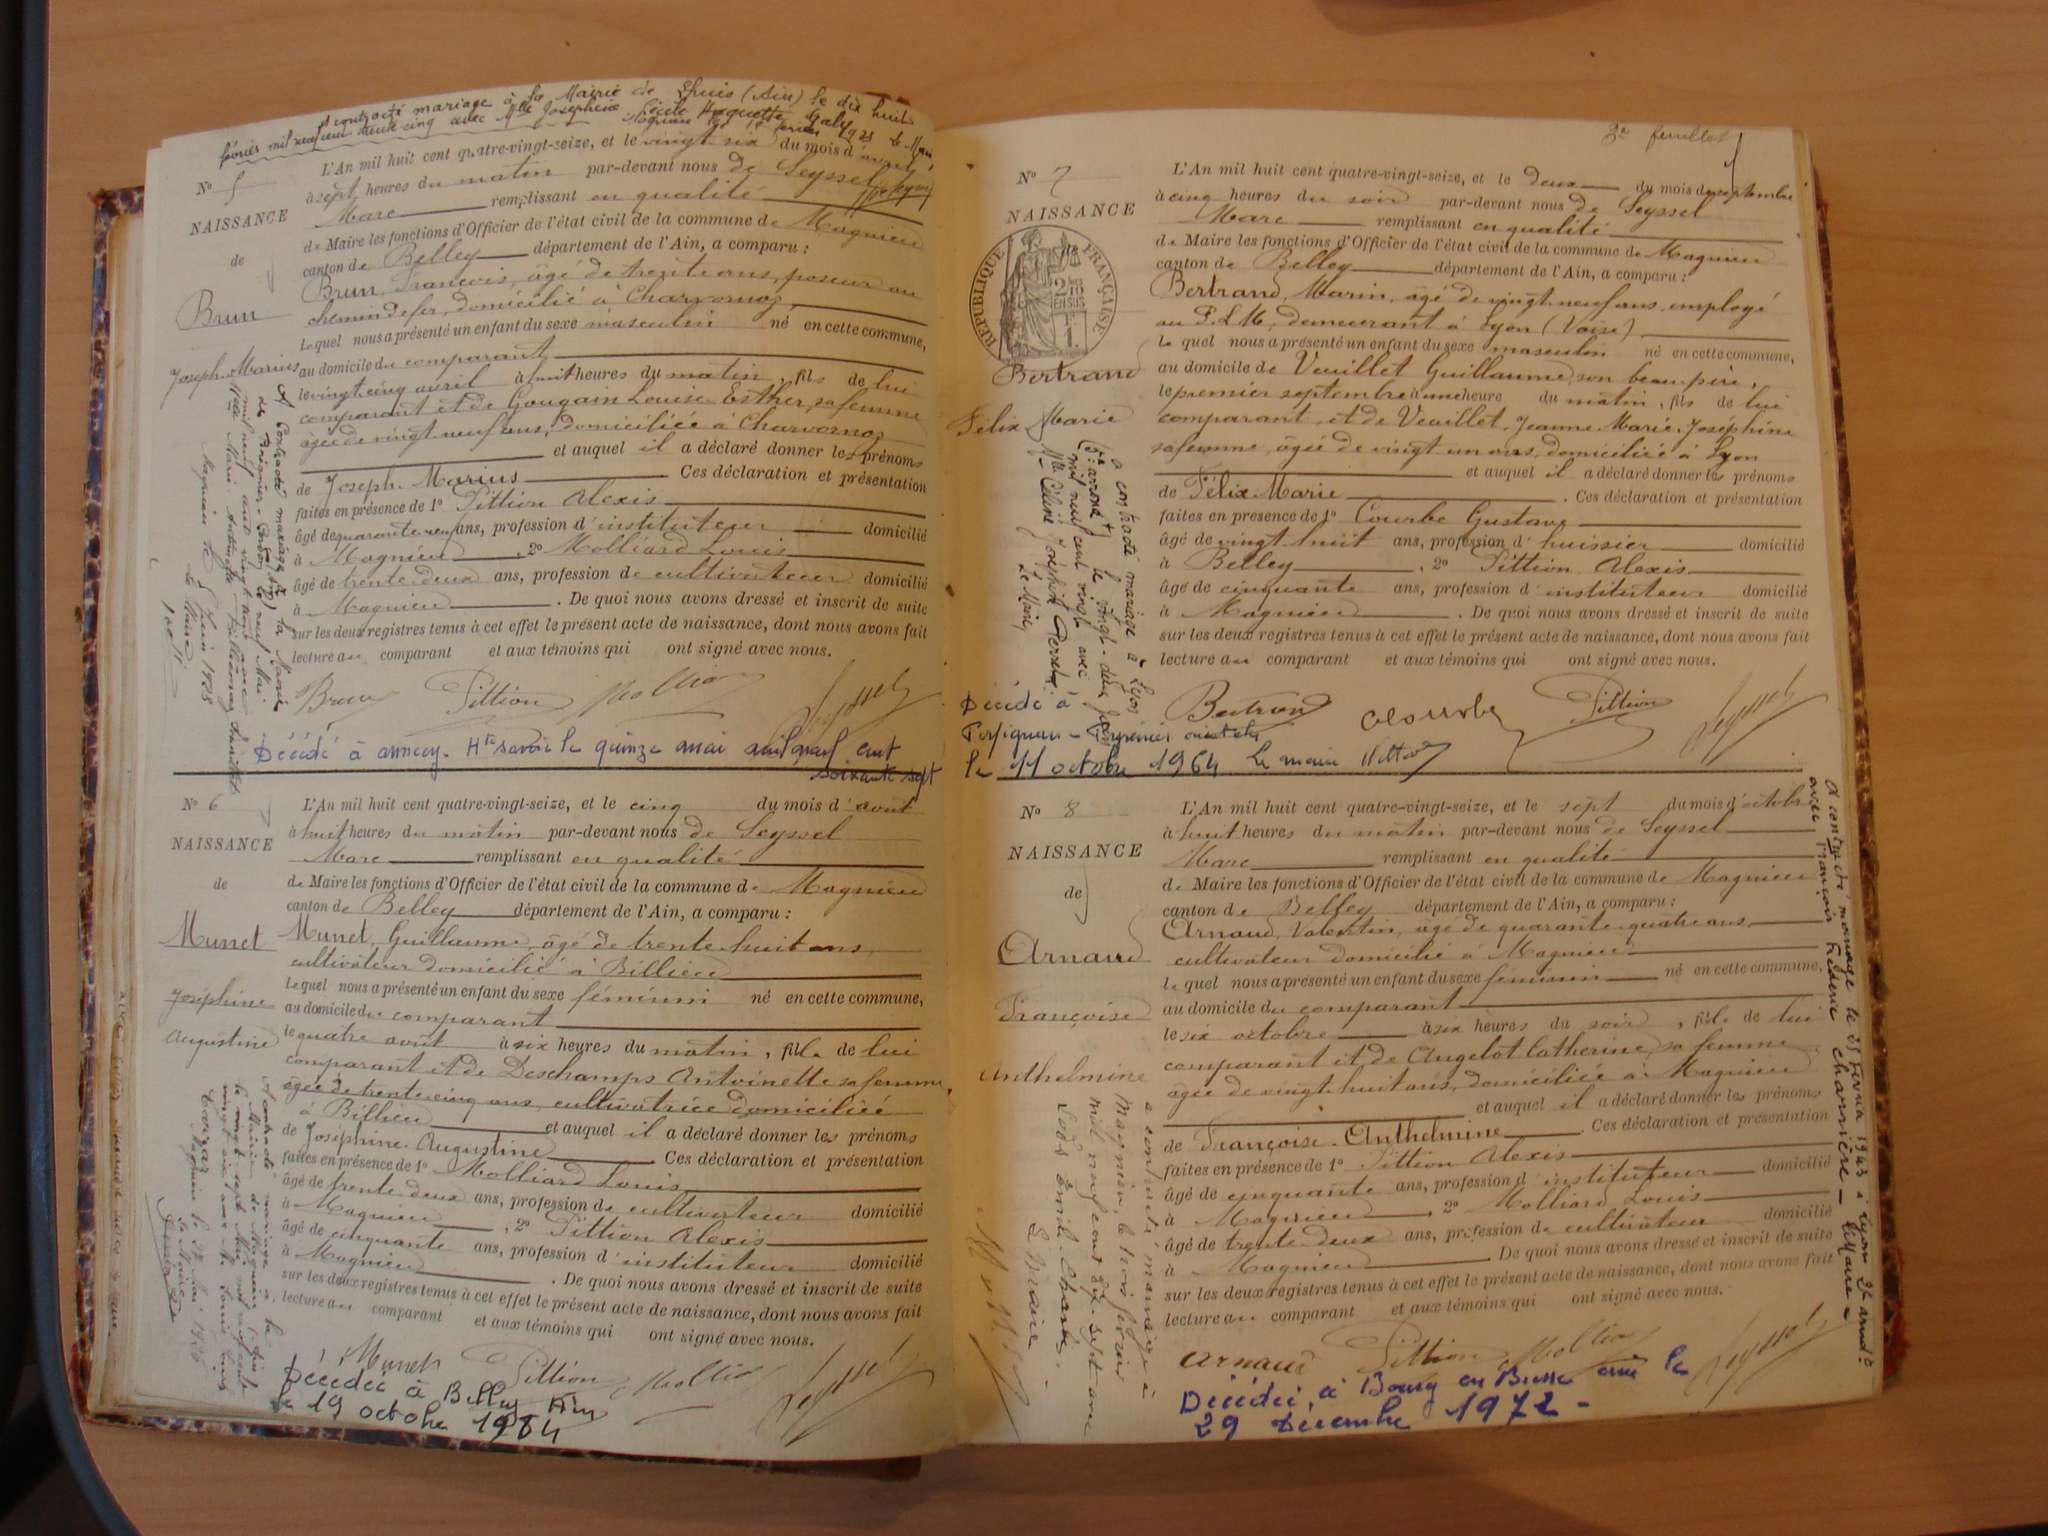 a contracté mariage à la Mairie de Lhuis (Ain) le dix huit
février mil neuf cent trente cinq avec Mlle Joséphine Cécile
N° 5
NAISSANCE
de
Brun
Joseph Marius
L'An mil huit cent quatre-vingt-seize, et le vingt six du mois d'avril
à sept heures du matin par-devant nous de Seyssel
Marc remplissant en qualité
de Maire les fonctions d'Officier de l'état civil de la commune de Magnieu
canton de Belley département de l'Ain, a comparu :
Brun, François, âgé de trente ans, poseur au
chemin de fer, domicilié à Charvornoz
Lequel nous a présenté un enfant du sexe masculin né en cette commune,
au domicile du comparant
le vingt cinq avril à huit heures du matin, fils de lui
comparant et de Gougain Louise Esther, sa femme
âgée de vingt neuf ans, domiciliée à Charvornoz
et auquel il a déclaré donner les prénoms
de Joseph Marius Ces déclaration et présentation
faites en présence de 1° Pittion Alexis
âgé de quarante neuf ans, profession d'instituteur domicilié
à Magnieu, 2° Molliard Louis
âgé de trente deux ans, profession de cultivateur domicilié
à Magnieu. De quoi nous avons dressé et inscrit de suite
sur les deux registres tenus à cet effet le présent acte de naissance, dont nous avons fait
lecture au comparant et aux témoins qui ont signé avec nous.
A Contracté mariage à la Mairie
de Brégnier-Cordon (Ain) le neuf Mai
Magnieu le 5 Juin 1923
Le Maire
Brun Pittion Molliard Seyssel
Décédé à Annecy - Hte Savoie le quinze mai mil neuf cent
soixante sept
N° 6
NAISSANCE
de
Munet
Joséphine
Augustine
L'An mil huit cent quatre-vingt-seize, et le cinq du mois d'août
à huit heures du matin par-devant nous de Seyssel
Marc remplissant en qualité
de Maire les fonctions d'Officier de l'état civil de la commune de Magnieu
canton de Belley département de l'Ain, a comparu :
Munet, Guillaume, âgé de trente huit ans,
cultivateur domicilié à Billieu
Lequel nous a présenté un enfant du sexe féminin né en cette commune,
au domicile du comparant
le quatre août à six heures du matin, fille de lui
comparant et de Deschamps Antoinette sa femme
âgée de trente cinq ans, cultivatrice domiciliée
à Billieu et auquel il a déclaré donner les prénoms
de Joséphine Augustine Ces déclaration et présentation
faites en présence de 1° Molliard Louis
âgé de trente deux ans, profession de cultivateur domicilié
à Magnieu, 2° Pittion Alexis
âgé de cinquante ans, profession d'instituteur domicilié
à Magnieu. De quoi nous avons dressé et inscrit de suite
sur les deux registres tenus à cet effet le présent acte de naissance, dont nous avons fait
lecture au comparant et aux témoins qui ont signé avec nous.
A contracté mariage à la
Mairie de Magnieu (Ain)
le vingt sept Mai mil neuf cent
Munet Pittion Molliard Seyssel
Décédée à Belley Ain
le 19 octobre 1984
3e feuillet
N° 7
NAISSANCE
de
RÉPUBLIQUE FRANÇAISE
Bertrand
Félix Marie
L'An mil huit cent quatre-vingt-seize, et le deux du mois de septembre
à cinq heures du soir par-devant nous de Seyssel
Marc remplissant en qualité
de Maire les fonctions d'Officier de l'état civil de la commune de Magnieu
canton de Belley département de l'Ain, a comparu :
Bertrand, Marin, âgé de vingt neuf ans, employé
au P.L.M., demeurant à Lyon (Vaise)
Lequel nous a présenté un enfant du sexe masculin né en cette commune,
au domicile de Veuillet Guillaume, son beau père,
le premier septembre à une heure du matin, fils de lui
comparant, et de Veuillet, Jeanne Marie Joséphine
sa femme, âgée de vingt un ans, domiciliée à Lyon
et auquel il a déclaré donner les prénoms
de Félix Marie. Ces déclaration et présentation
faites en présence de 1° Courbe Gustave
âgé de vingt huit ans, profession d'huissier domicilié
à Belley, 2° Pittion Alexis
âgé de cinquante ans, profession d'instituteur domicilié
à Magnieu. De quoi nous avons dressé et inscrit de suite
sur les deux registres tenus à cet effet le présent acte de naissance, dont nous avons fait
lecture au comparant et aux témoins qui ont signé avec nous.
a contracté mariage à Lyon
mil neuf cent vingt avec
Mlle Céline Joséphine
Le Maire,
Bertrand Courbe Pittion Seyssel
Décédé à
Perpignan - Pyrénées orientales
le 11 octobre 1964 Le maire
N° 8
NAISSANCE
de
Arnaud
Françoise
Anthelmine
L'An mil huit cent quatre-vingt-seize, et le sept du mois d'octobre
à huit heures du matin par-devant nous de Seyssel
Marc remplissant en qualité
de Maire les fonctions d'Officier de l'état civil de la commune de Magnieu
canton de Belley département de l'Ain, a comparu :
Arnaud, Valentin, âgé de quarante quatre ans,
cultivateur domicilié à Magnieu
Lequel nous a présenté un enfant du sexe féminin né en cette commune,
au domicile du comparant
le six octobre à six heures du soir, fille de lui
comparant et de Angelot Catherine, sa femme
âgée de vingt huit ans, domiciliée à Magnieu
et auquel il a déclaré donner les prénoms
de Françoise Anthelmine. Ces déclaration et présentation
faites en présence de 1° Pittion Alexis
âgé de cinquante ans, profession d'instituteur domicilié
à Magnieu, 2° Molliard Louis
âgé de trente deux ans, profession de cultivateur domicilié
à Magnieu. De quoi nous avons dressé et inscrit de suite
sur les deux registres tenus à cet effet le présent acte de naissance, dont nous avons fait
lecture au comparant et aux témoins qui ont signé avec nous.
a contracté mariage à
Magnieu, le trois février
mil neuf cent dix-sept avec
Émile Charles.
Le Maire
A contracté mariage le 25 Février 1943 à Lyon 2e arrondt
avec François Fréderic Charrière - Le Maire -
Arnaud Pittion Molliard Seyssel
Décédée, à Bourg en Bresse Ain le
29 Décembre 1972 -